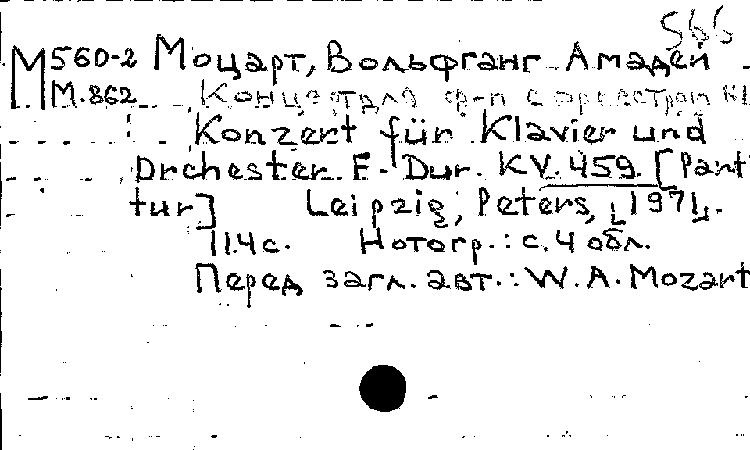 566
М560-2 Моцарт, Вольфганг Амадей
М.862 Концерт для ф-п с оркестром
Konzert für Klavier und
Orchester F-Dur. KV. 459. [Parti
tur] Leipzig, Peters, [1971].
114 с. Нотогр.: с. 4 обл.
Перед загл. авт.: W. A. Mozart